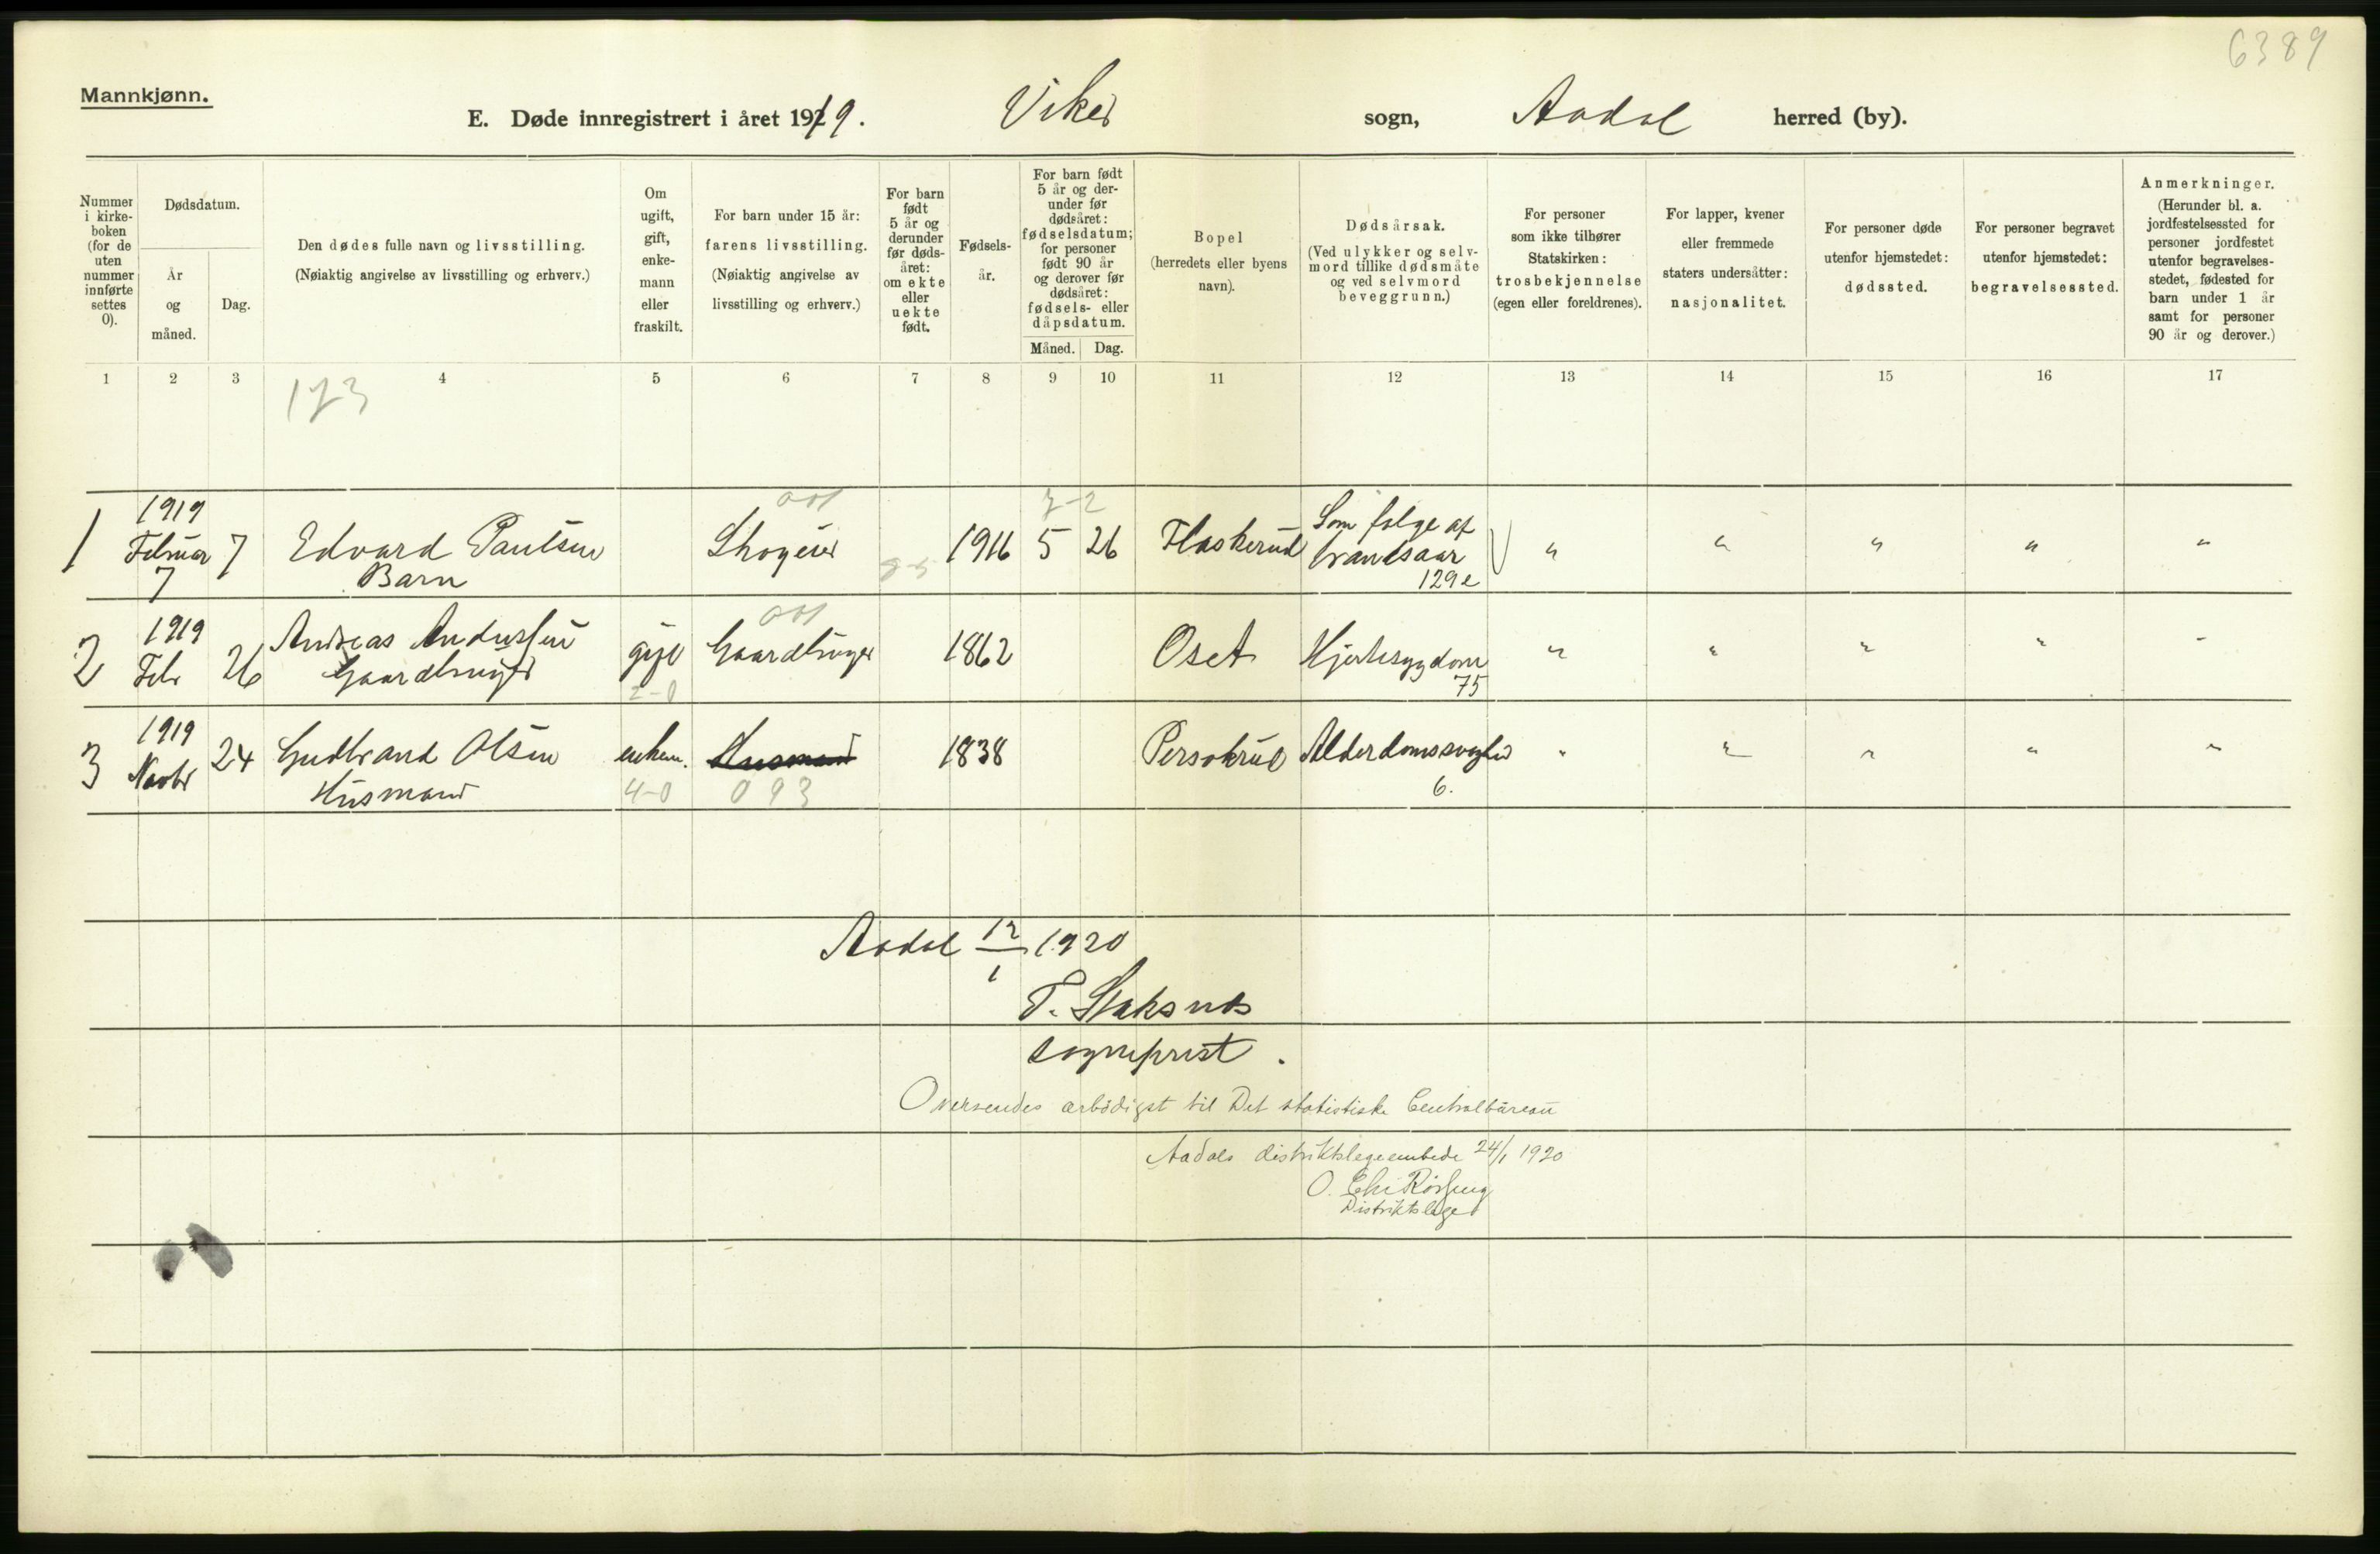 6389
Mannkjønn.
E. Døde innregistrert i året 1919. Viker sogn, Aadal herred (by).
Nummer i kirke-boken (for de uten nummer innførte settes 0).
Dødsdatum.
År og måned.
Dag.
Den dødes fulle navn og livsstilling.
(Nøiaktig angivelse av livsstilling og erhverv.)
Om ugift, gift, enke-mann eller fraskilt.
For barn under 15 år:
farens livsstilling.
(Nøiaktig angivelse av livsstilling og erhverv.)
For barn født 5 år og derunder før døds-året: om ekte eller uekte født.
Fødsels-år.
For barn født 5 år og der-under før dødsåret: fødselsdatum; for personer født 90 år og derover før dødsåret: fødsels- eller dåpsdatum.
Måned. Dag.
Bopel
(herredets eller byens navn).
Dødsårsak.
(Ved ulykker og selv-mord tillike dødsmåte og ved selvmord beveggrunn.)
For personer som ikke tilhører Statskirken: trosbekjennelse (egen eller foreldrenes).
For lapper, kvener eller fremmede staters undersåtter: nasjonalitet.
For personer døde utenfor hjemstedet: dødssted.
For personer begravet utenfor hjemstedet: begravelsessted.
Anmerkninger.
(Herunder bl. a. jordfestelsessted for personer jordfestet utenfor begravelses-stedet, fødested for barn under 1 år samt for personer 90 år og derover.)
1 2 3 4 5 6 7 8 9 10 11 12 13 14 15 16 17
173
001 7-2
1 1919 Februar 7 7 Edvard Paulsen Barn Skogeier 1916 5 26 Flaskerud Som følge af brandsaar 129e " " " " "
001
2 1919 Febr 26 Andreas Anderssen Gaardbruger gift 2-0 Gaardbruger 1862 Oset Hjertesygdom 75 " " " " "
3 1919 Novbr 24 Gudbrand Olsen Husmand enkem. 4-0 Husmand 093 1838 Persokrud Alderdomssvaghed 6. " " " " "
Aadal 12/1 1920
T. Staksnes
sogneprest.
Oversendes ærbödigst til Det statistiske Centralbureau
Aadals distriktslegeembede 24/1 1920
O. Chr Rörfeng
Distriktslæge